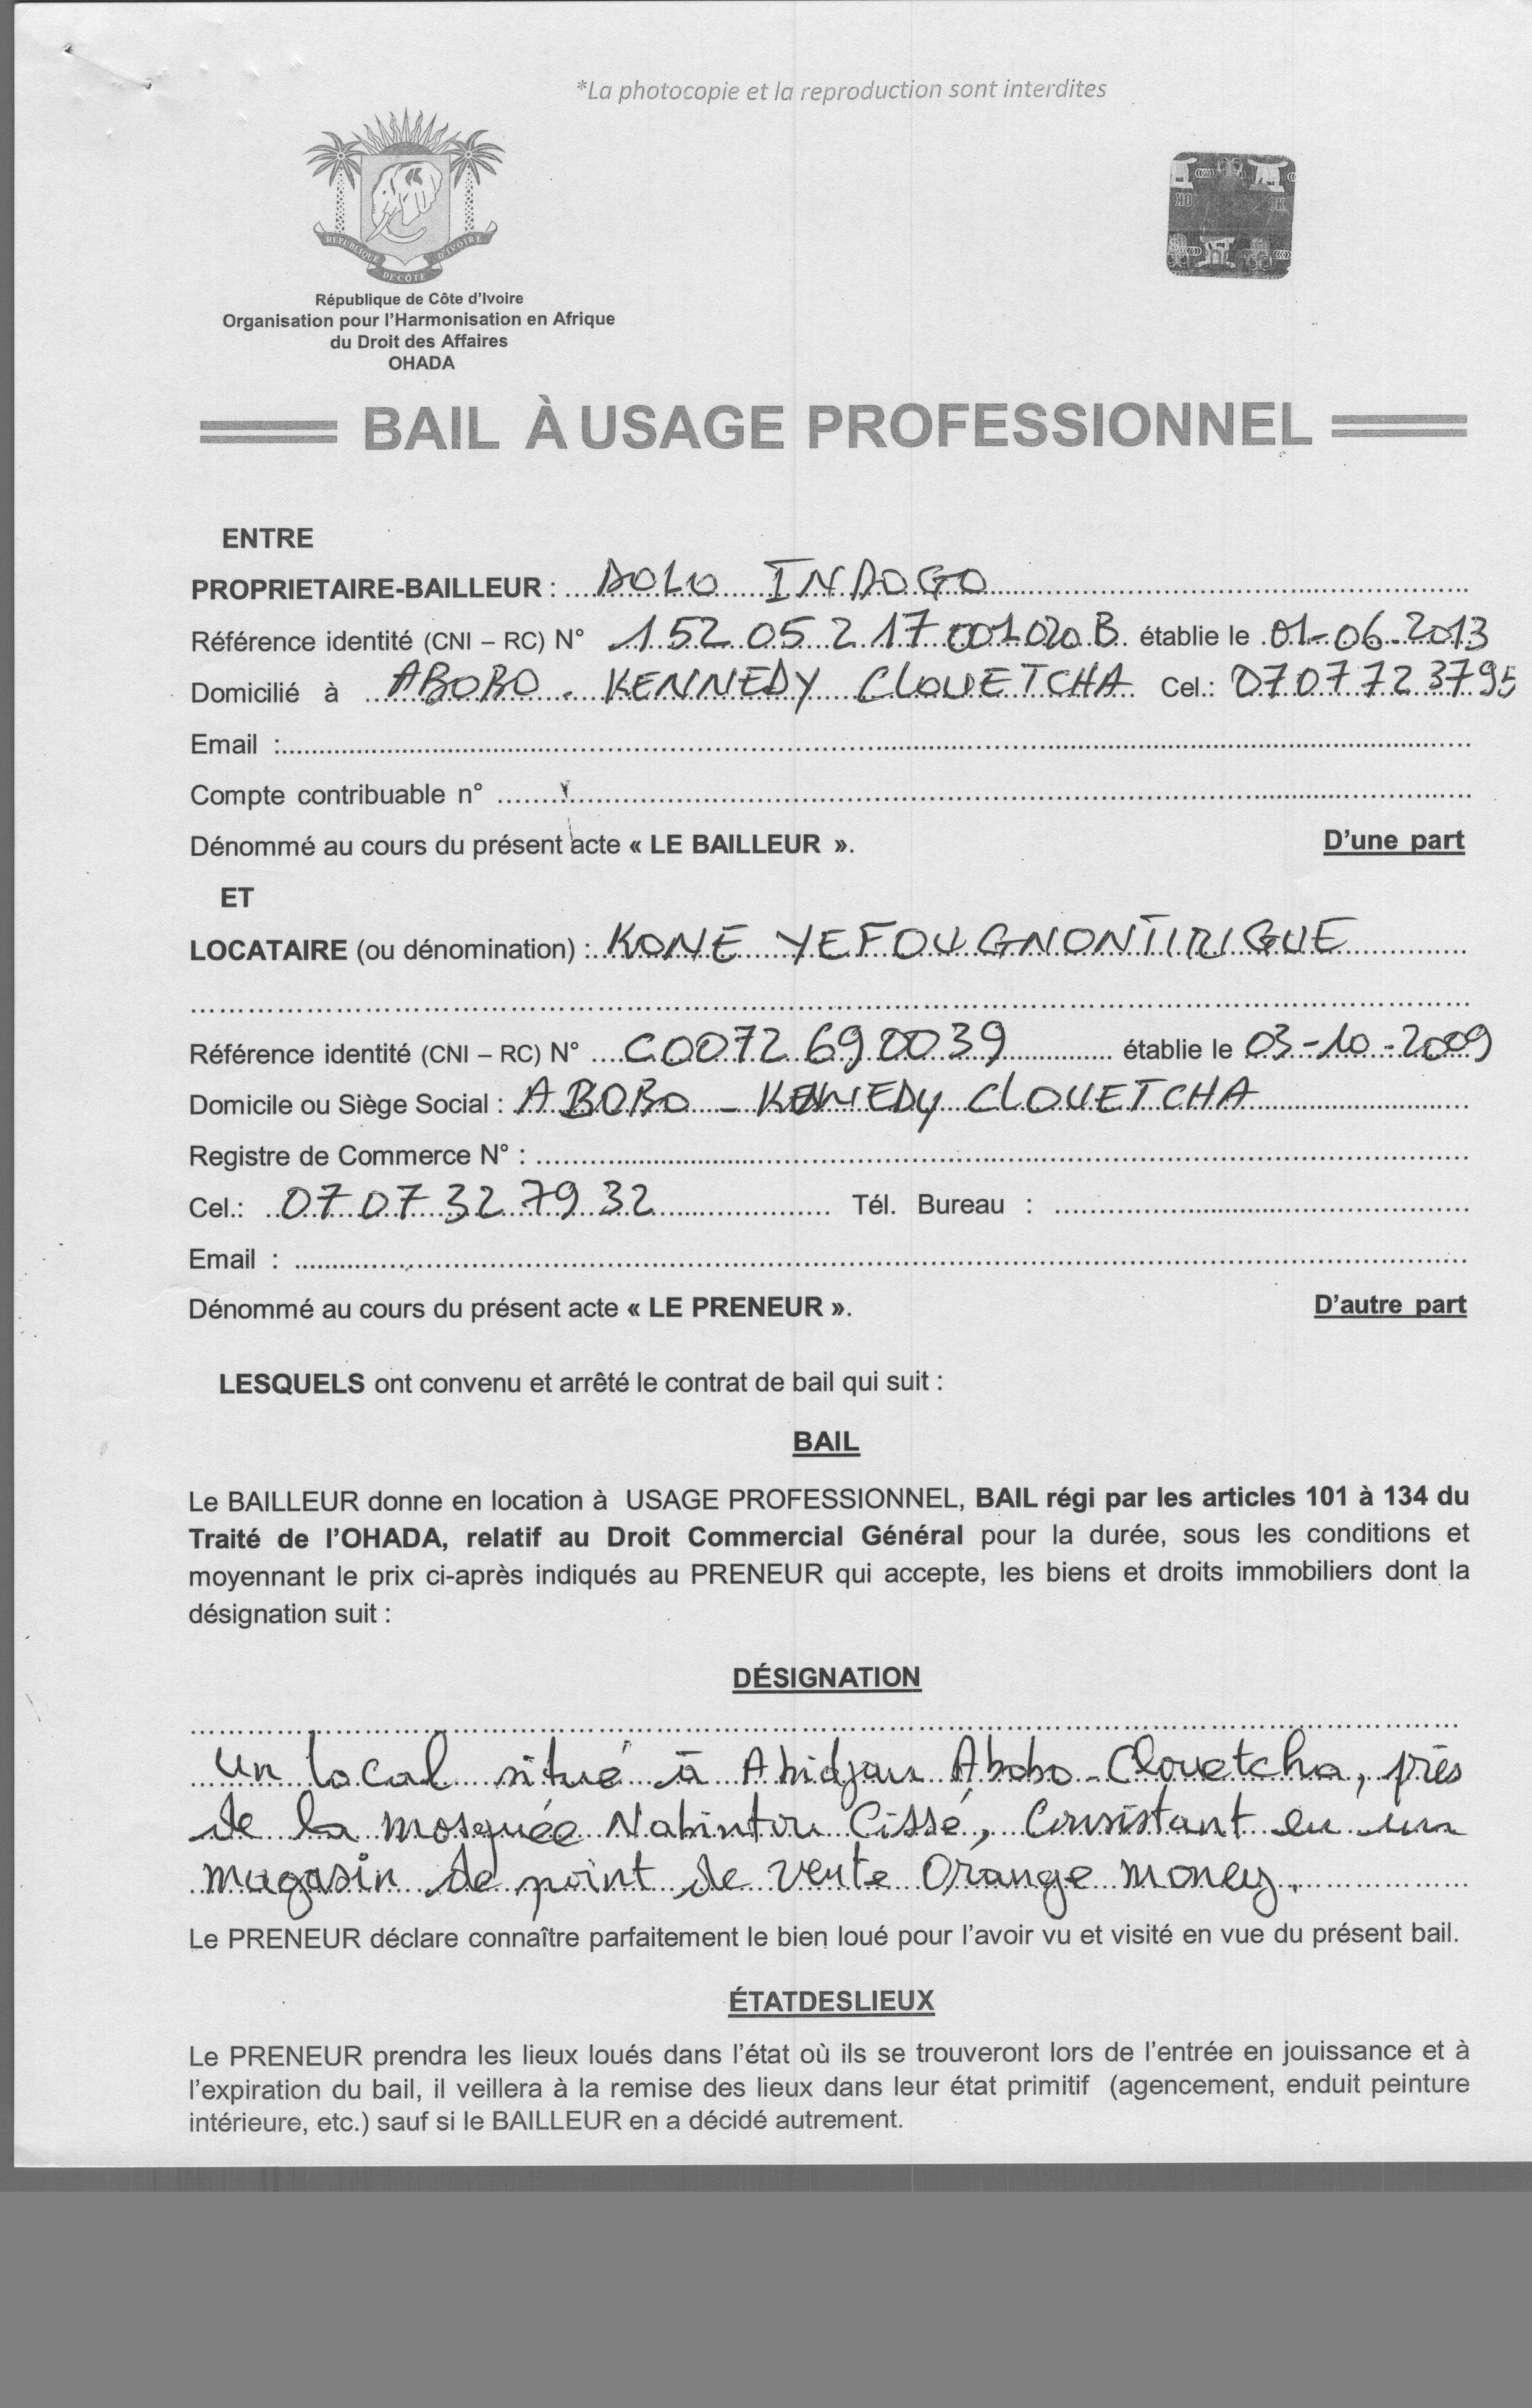 *La photocopie et la reproduction sont interdites
REPUBLIQUE DE CÔTE D'IVOIRE
République de Côte d'Ivoire
Organisation pour l'Harmonisation en Afrique
du Droit des Affaires
OHADA
BAIL À USAGE PROFESSIONNEL
ENTRE
PROPRIETAIRE-BAILLEUR : DOLO INDOGO
Référence identité (CNI – RC) N° 152 05 2 17 001 020 B établie le 01-06-2013
Domicilié à ABOBO - KENNEDY CLOUETCHA Cel.: 07 07 72 37 95
Email :
Compte contribuable n°
Dénommé au cours du présent acte « LE BAILLEUR ». D'une part
ET
LOCATAIRE (ou dénomination) : KONE YEFOUGNONTIRIGUE
Référence identité (CNI – RC) N° C0072 69 0039 établie le 03-10-2009
Domicile ou Siège Social : ABOBO - KENNEDY CLOUETCHA
Registre de Commerce N° :
Cel.: 07 07 32 79 32 Tél. Bureau :
Email :
Dénommé au cours du présent acte « LE PRENEUR ». D'autre part
LESQUELS ont convenu et arrêté le contrat de bail qui suit :
BAIL
Le BAILLEUR donne en location à USAGE PROFESSIONNEL, BAIL régi par les articles 101 à 134 du
Traité de l'OHADA, relatif au Droit Commercial Général pour la durée, sous les conditions et
moyennant le prix ci-après indiqués au PRENEUR qui accepte, les biens et droits immobiliers dont la
désignation suit :
DÉSIGNATION
Un local situé à Abidjan Abobo-Clouetcha, près
de la mosquée Nabintou Cissé, Consistant en un
magasin de point de vente Orange money.
Le PRENEUR déclare connaître parfaitement le bien loué pour l'avoir vu et visité en vue du présent bail.
ÉTATDESLIEUX
Le PRENEUR prendra les lieux loués dans l'état où ils se trouveront lors de l'entrée en jouissance et à
l'expiration du bail, il veillera à la remise des lieux dans leur état primitif (agencement, enduit peinture
intérieure, etc.) sauf si le BAILLEUR en a décidé autrement.